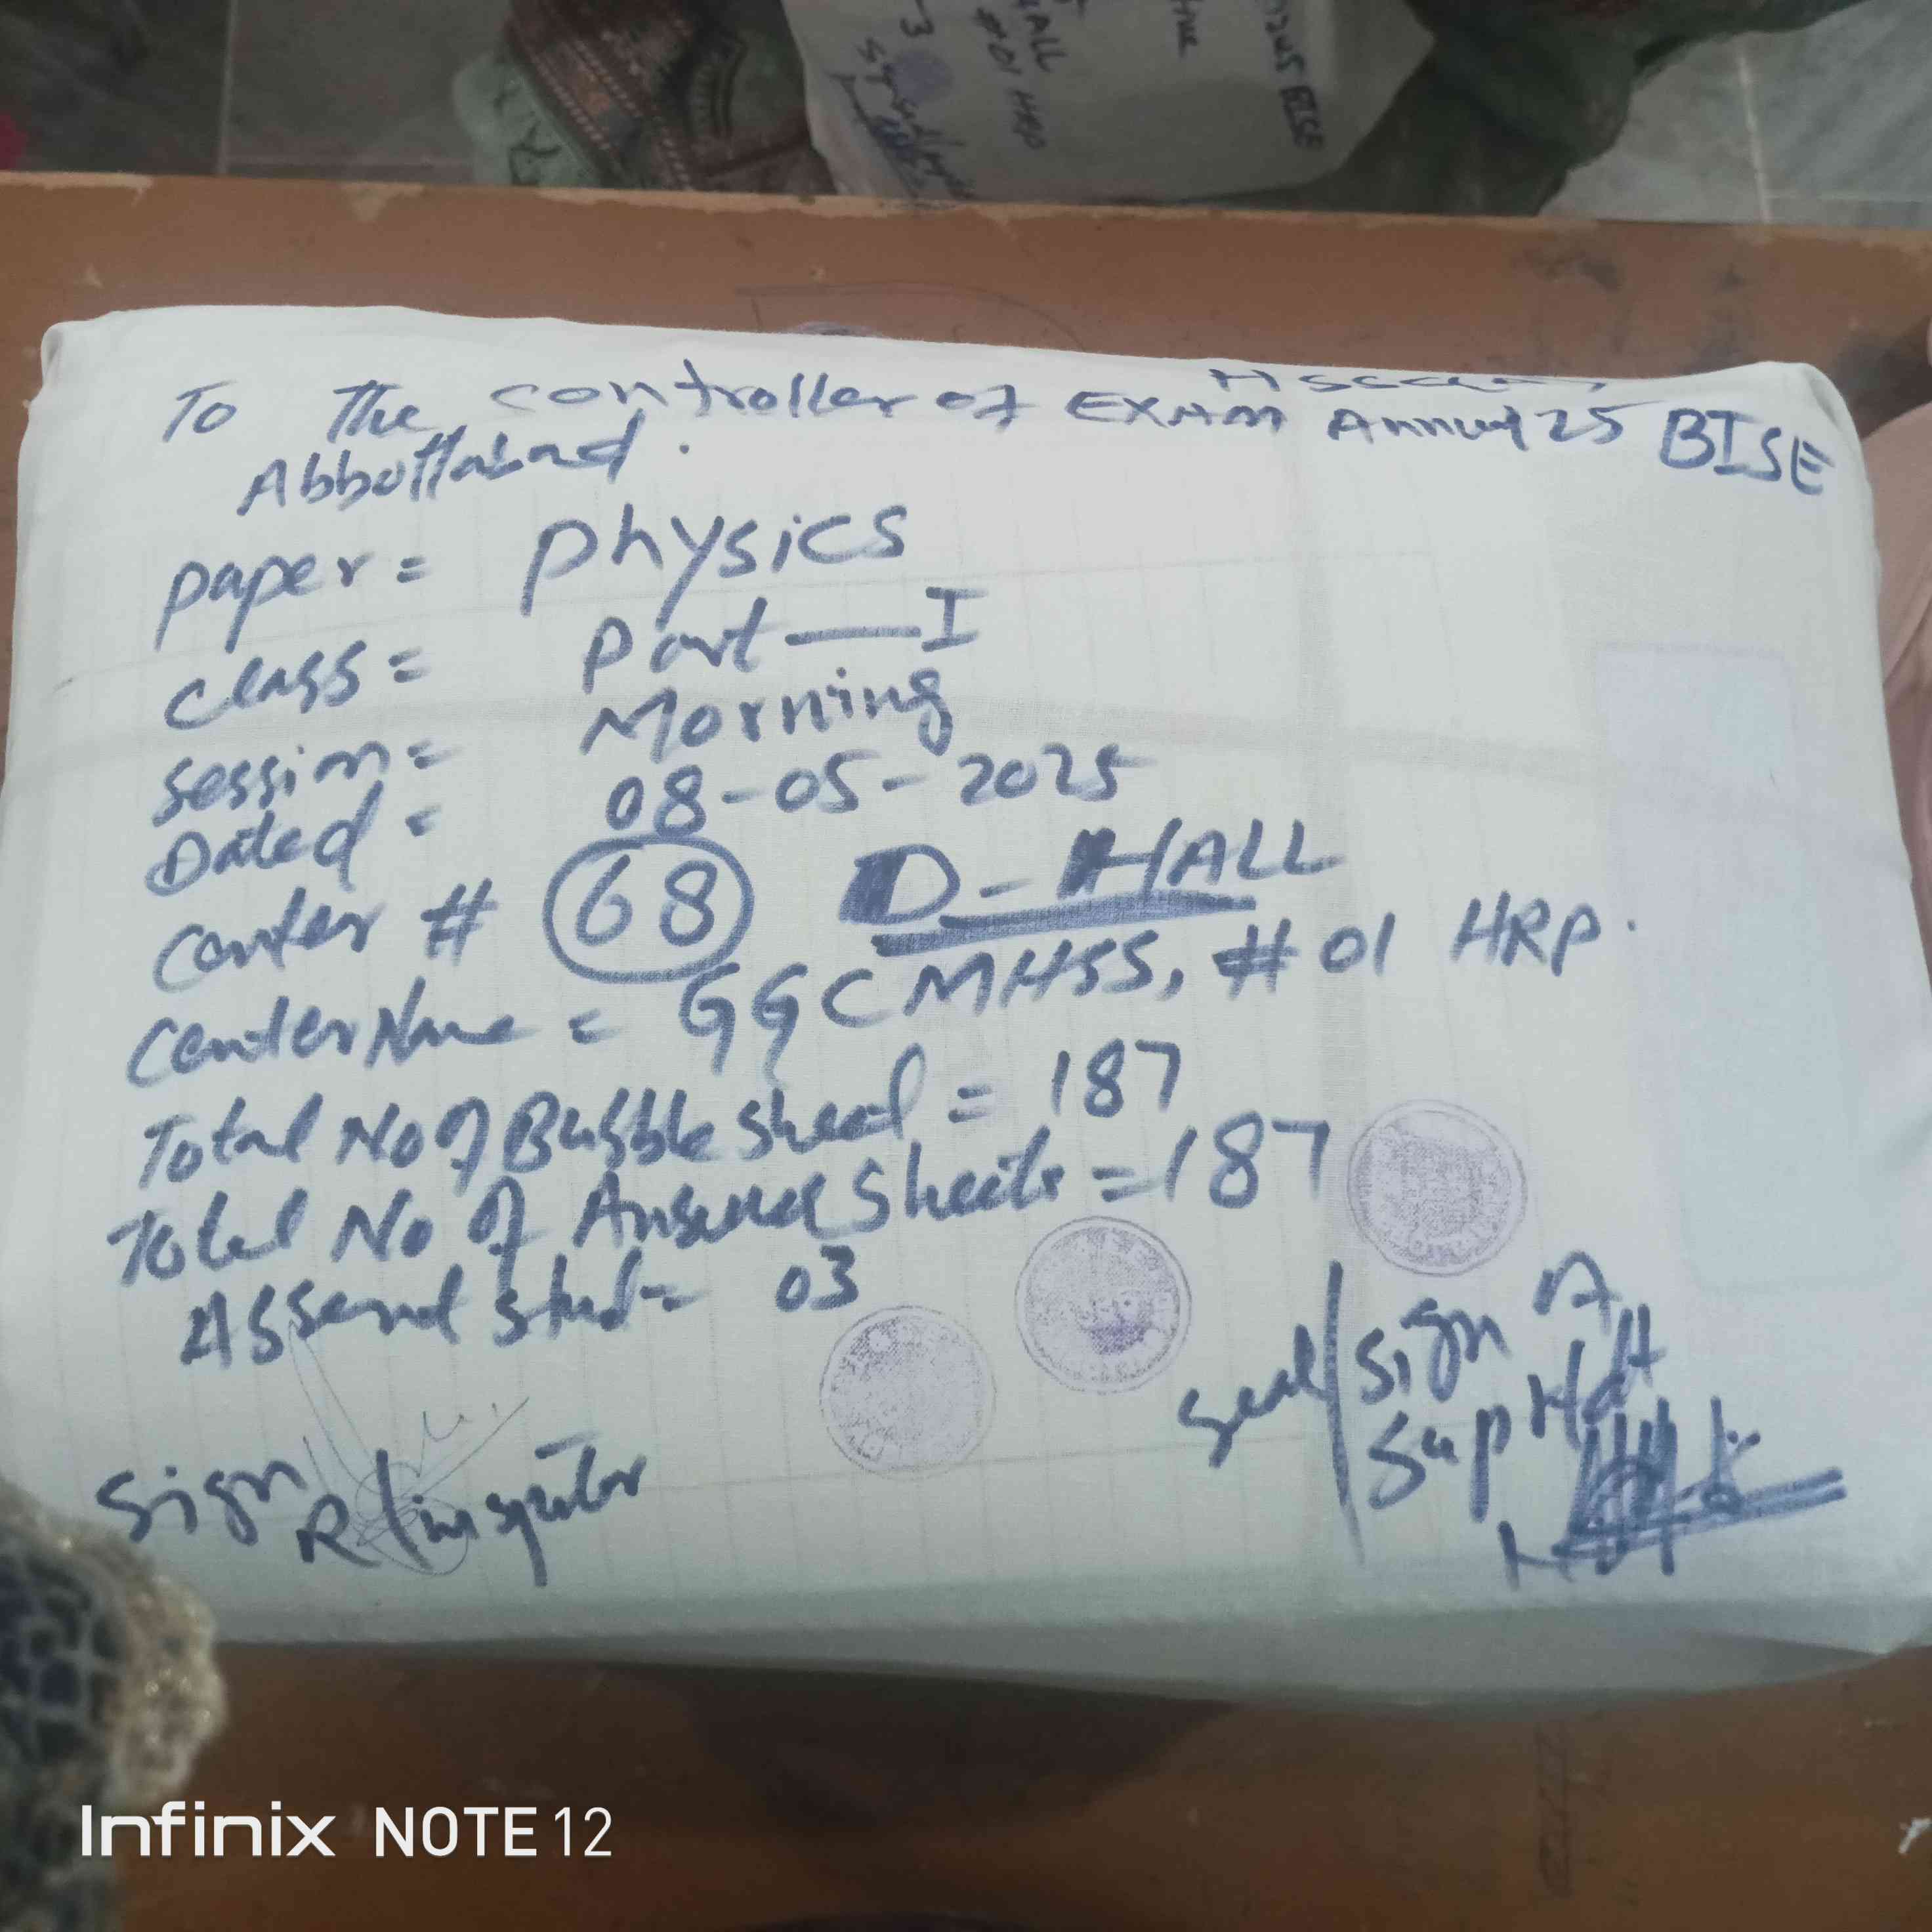 BISE
HALL
#01 HRP
To The controller of EXAM Annual 25 BISE
Abbottabad.
paper = physics
class = Part — I
session = Morning
Dated = 08-05-2025
Center # 68 D-HALL
Center Name = GGCMHSS, #01 HRP.
Total No of Bubble sheet = 187
Total No of Answer Sheets = 187
Assend stud = 03
Seal/Sign
Sup
Sign R/inspector
Infinix NOTE 12